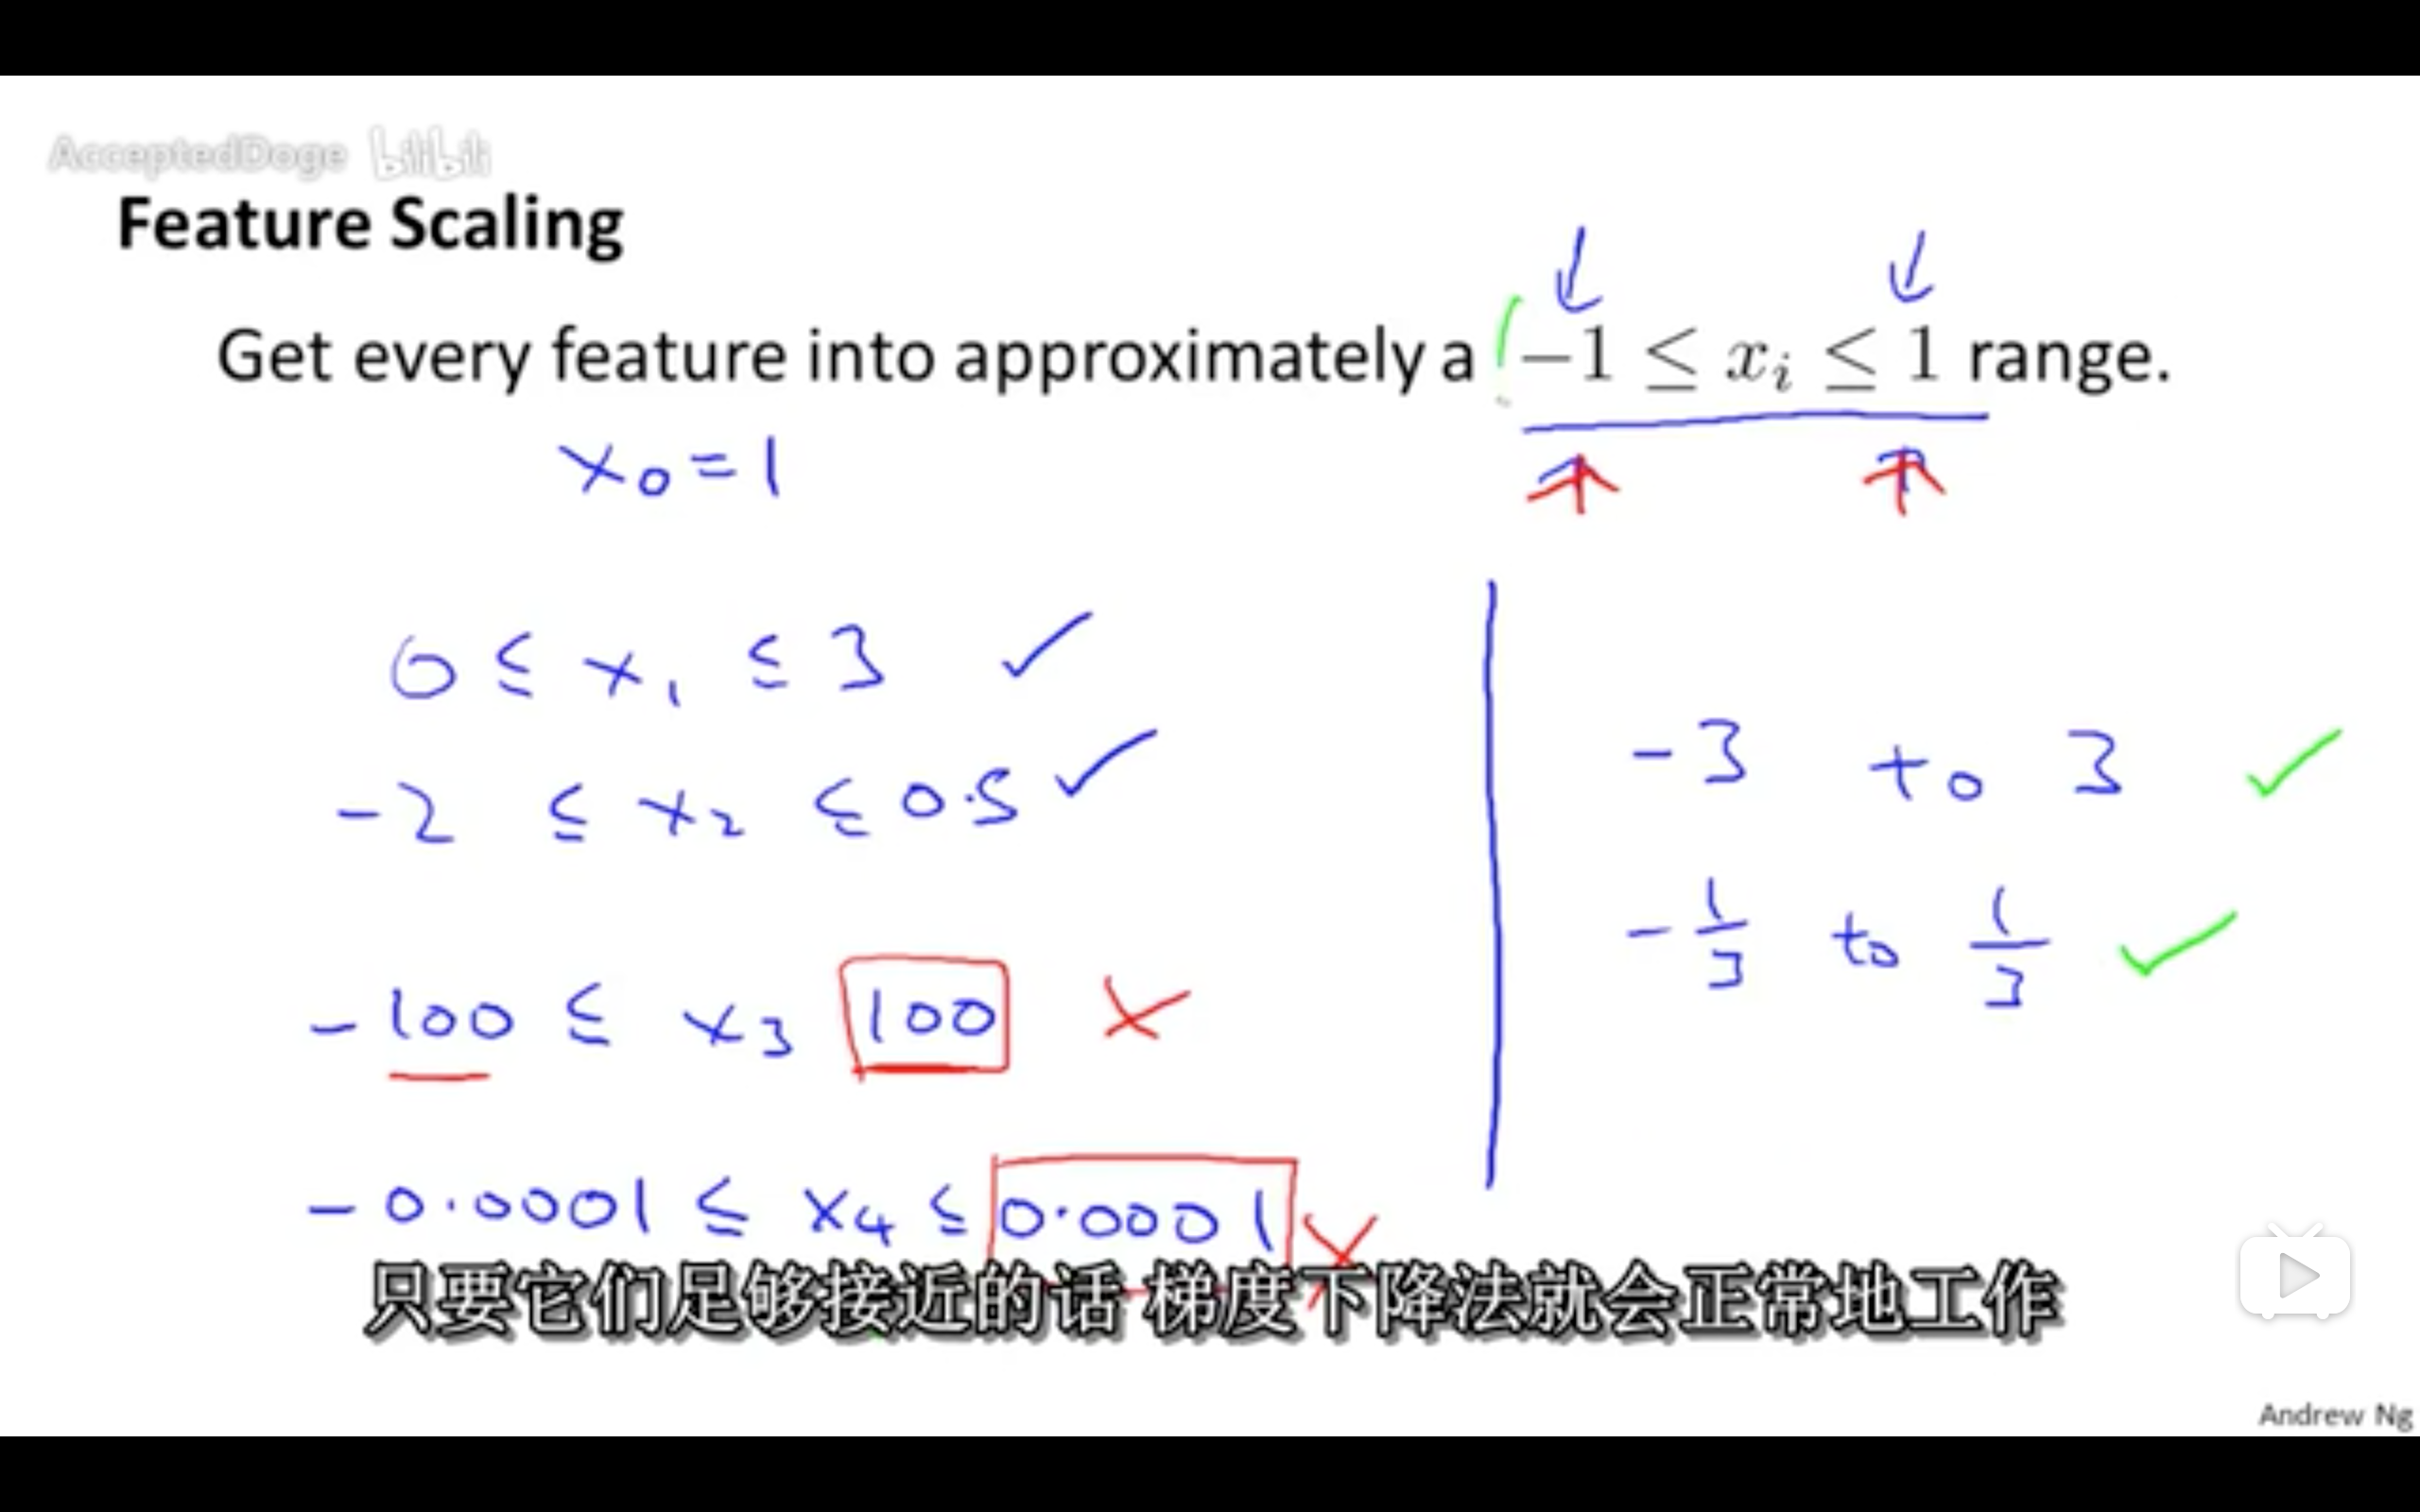 AcceptedDoge bilibili
Feature Scaling
Get every feature into approximately a −1 ≤ xᵢ ≤ 1 range.
x₀ = 1
0 ≤ x₁ ≤ 3 ✓
-2 ≤ x₂ ≤ 0.5 ✓
-100 ≤ x₃ 100 ×
-0.0001 ≤ x₄ ≤ 0.0001 ×
-3 to 3 ✓
-1/3 to 1/3 ✓
只要它们足够接近的话 梯度下降法就会正常地工作
Andrew Ng